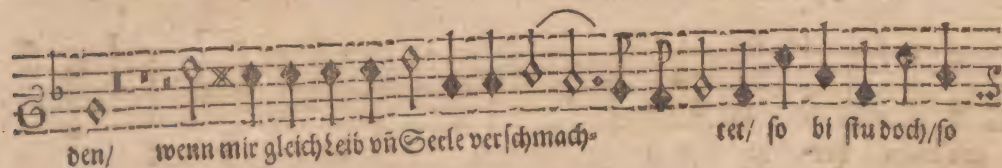 den/ wenn mir gleich Leib vñ Seele verſchmach⸗ tet/ ſo bi ſtu doch/ ſo